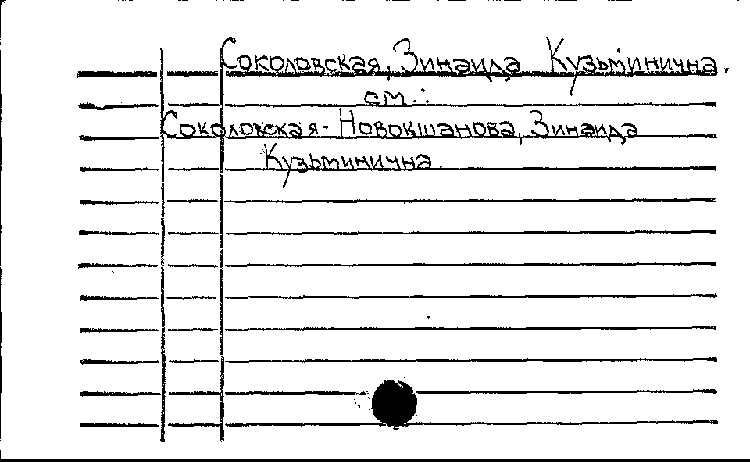 Соколовская, Зинаида Кузьминична.
см.:
Соколовская-Новокшанова, Зинаида
Кузьминична.